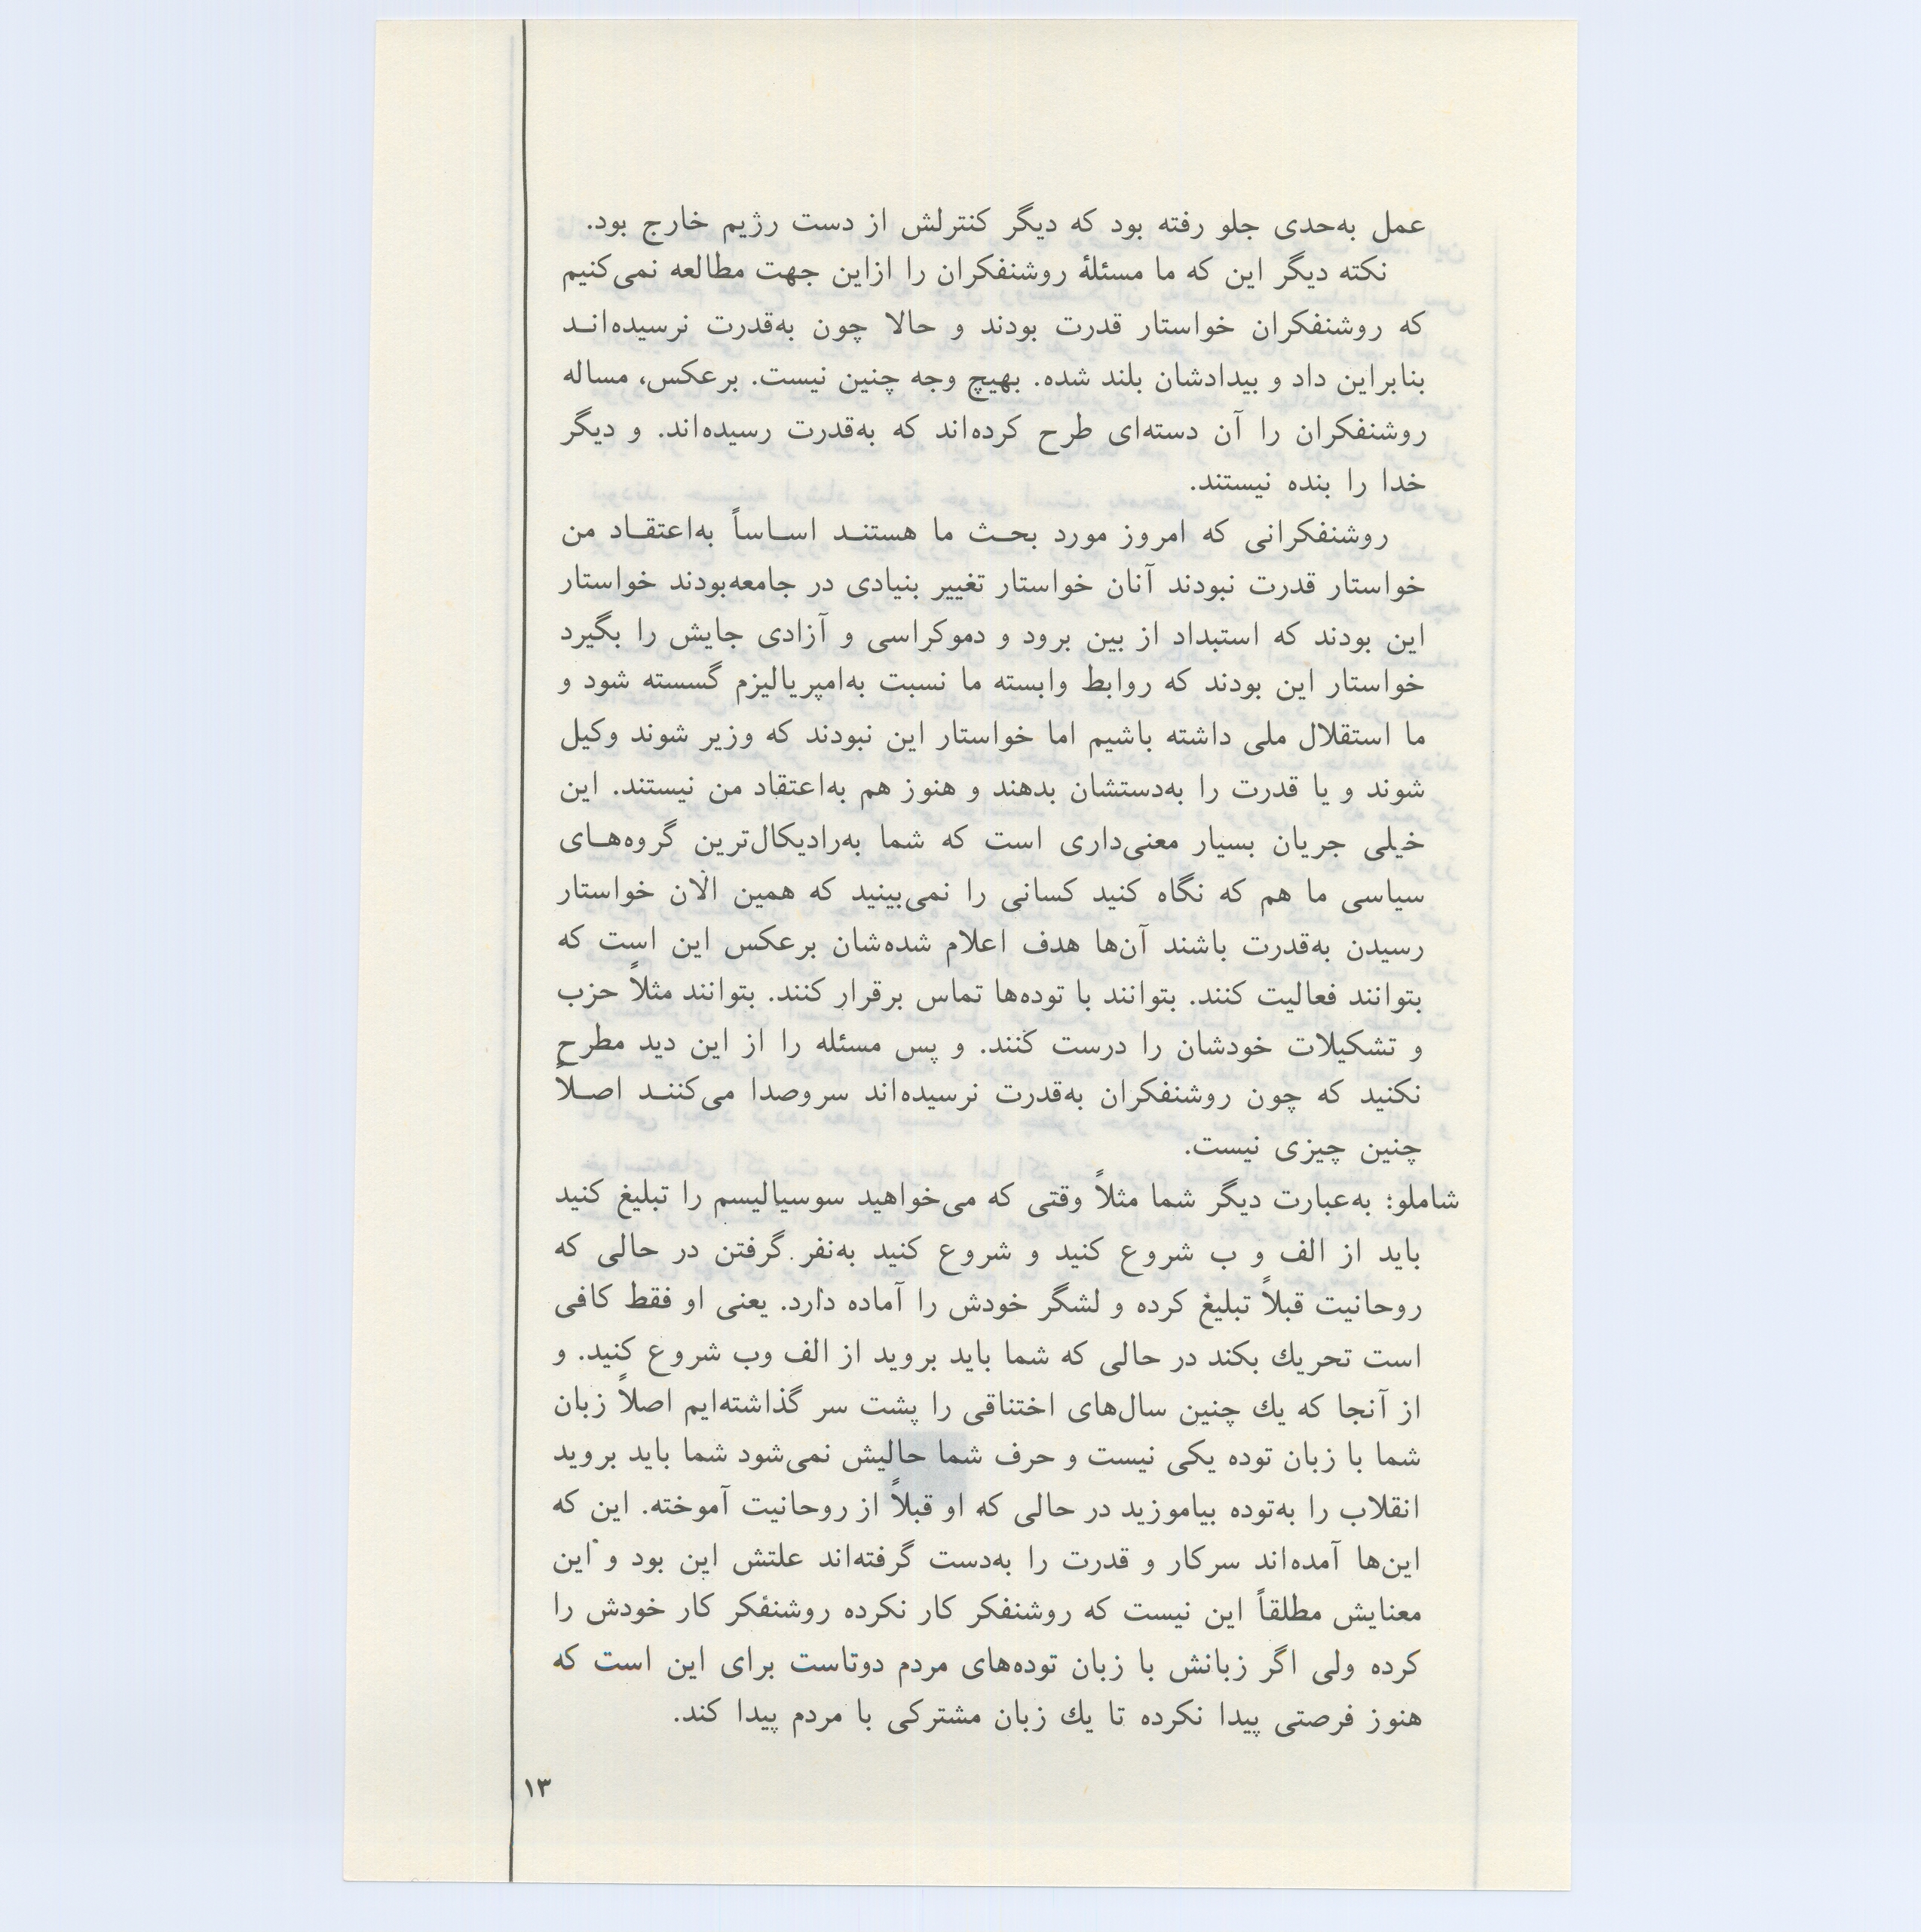 عمل به‌حدی جلو رفته بود که دیگر کنترلش از دست رژیم خارج بود.
نکته دیگر این که ما مسئلهٔ روشنفکران را ازاین جهت مطالعه نمی‌کنیم
که روشنفکران خواستار قدرت بودند و حالا چون به‌قدرت نرسیده‌انـد
بنابراین داد و بیدادشان بلند شده. بهیچ وجه چنین نیست. برعکس، مساله
روشنفکران را آن دسته‌ای طرح کرده‌اند که به‌قدرت رسیده‌اند. و دیگر
خدا را بنده نیستند.
روشنفکرانی که امروز مورد بحـث ما هستنـد اسـاساً به‌اعتقـاد من
خواستار قدرت نبودند آنان خواستار تغییر بنیادی در جامعه‌بودند خواستار
این بودند که استبداد از بین برود و دموکراسی و آزادی جایش را بگیرد
خواستار این بودند که روابط وابسته ما نسبت به‌امپریالیزم گسسته شود و
ما استقلال ملی داشته باشیم اما خواستار این نبودند که وزیر شوند وکیل
شوند و یا قدرت را به‌دستشان بدهند و هنوز هم به‌اعتقاد من نیستند. این
خیلی جریان بسیار معنی‌داری است که شما به‌رادیکال‌ترین گروه‌هـای
سیاسی ما هم که نگاه کنید کسانی را نمی‌بینید که همین الان خواستار
رسیدن به‌قدرت باشند آن‌ها هدف اعلام شده‌شان برعکس این است که
بتوانند فعالیت کنند. بتوانند با توده‌ها تماس برقرار کنند. بتوانند مثلاً حزب
و تشکیلات خودشان را درست کنند. و پس مسئله را از این دید مطرح
نکنید که چون روشنفکران به‌قدرت نرسیده‌اند سروصدا می‌کننـد اصـلاً
چنین چیزی نیست.
شاملو: به‌عبارت دیگر شما مثلاً وقتی که می‌خواهید سوسیالیسم را تبلیغ کنید
باید از الف و ب شروع کنید و شروع کنید به‌نفر گرفتن در حالی که
روحانیت قبلاً تبلیغ کرده و لشگر خودش را آماده دارد. یعنی او فقط کافی
است تحریك بکند در حالی که شما باید بروید از الف وب شروع کنید. و
از آنجا که یك چنین سال‌های اختناقی را پشت سر گذاشته‌ایم اصلاً زبان
شما با زبان توده یکی نیست و حرف شما حالیش نمی‌شود شما باید بروید
انقلاب را به‌توده بیاموزید در حالی که او قبلاً از روحانیت آموخته. این که
این‌ها آمده‌اند سرکار و قدرت را به‌دست گرفته‌اند علتش این بود و این
معنایش مطلقاً این نیست که روشنفکر کار نکرده روشنفکر کار خودش را
کرده ولی اگر زبانش با زبان توده‌های مردم دوتاست برای این است که
هنوز فرصتی پیدا نکرده تا یك زبان مشترکی با مردم پیدا کند.
۱۳